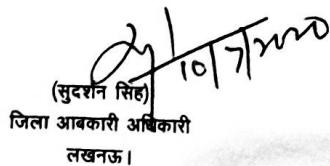 10/7/2020
(सुदर्शन सिंह)
जिला आबकारी अधिकारी
लखनऊ।